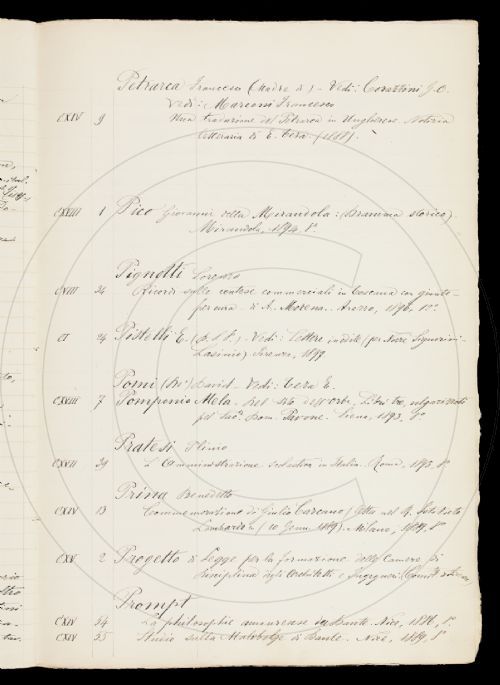 Petrarca Francesco (Madre di) - Vedi: Corazzini G. O.
Vedi: Marconi Francesco
CXIV 9 Una traduzione del Petrarca in Ungherese. Notizia
letteraria di E. Teza. (1888).
CXVIII 1 Pico Giovanni della Mirandola: (Dramma storico)
Mirandola, 1894. 8°
Pignotti Lorenzo
CXIII 24 Ricordi sulle contese commerciali in Toscana con
di A. Morena. Arezzo, 1896, 
CI 24 Pistelli E. Vedi: Lettere inedite (per Nozze
Firenze, 1899
Pomi David. Vedi: Teza E.
CXVIII 7 Pomponio Mela. Del Sito dell'Orbe, Libri tre, volgarizzati
Pavone. Siena, 1893. 8°
Pratesi Plinio
CXVII 39 L'Amministrazione scolastica in Italia. Roma, 1893. 8°
Prina Benedetto
CXIV 13 Commemorazione di Giulio Carcano, letta nel R. Istituto
Lombardo (10 Genn. 1889). Milano, 1889, 8°
CXV 2 Progetto di Legge per la formazione delle Camere di
Disciplina degli Architetti e Ingegneri
Prompt
CXIV 54 La philosophie amoureuse de Dante. Nice, 1888, 8°
CXIV 55 Studio sulla Malebolge di Dante. Nice, 1889, 8°